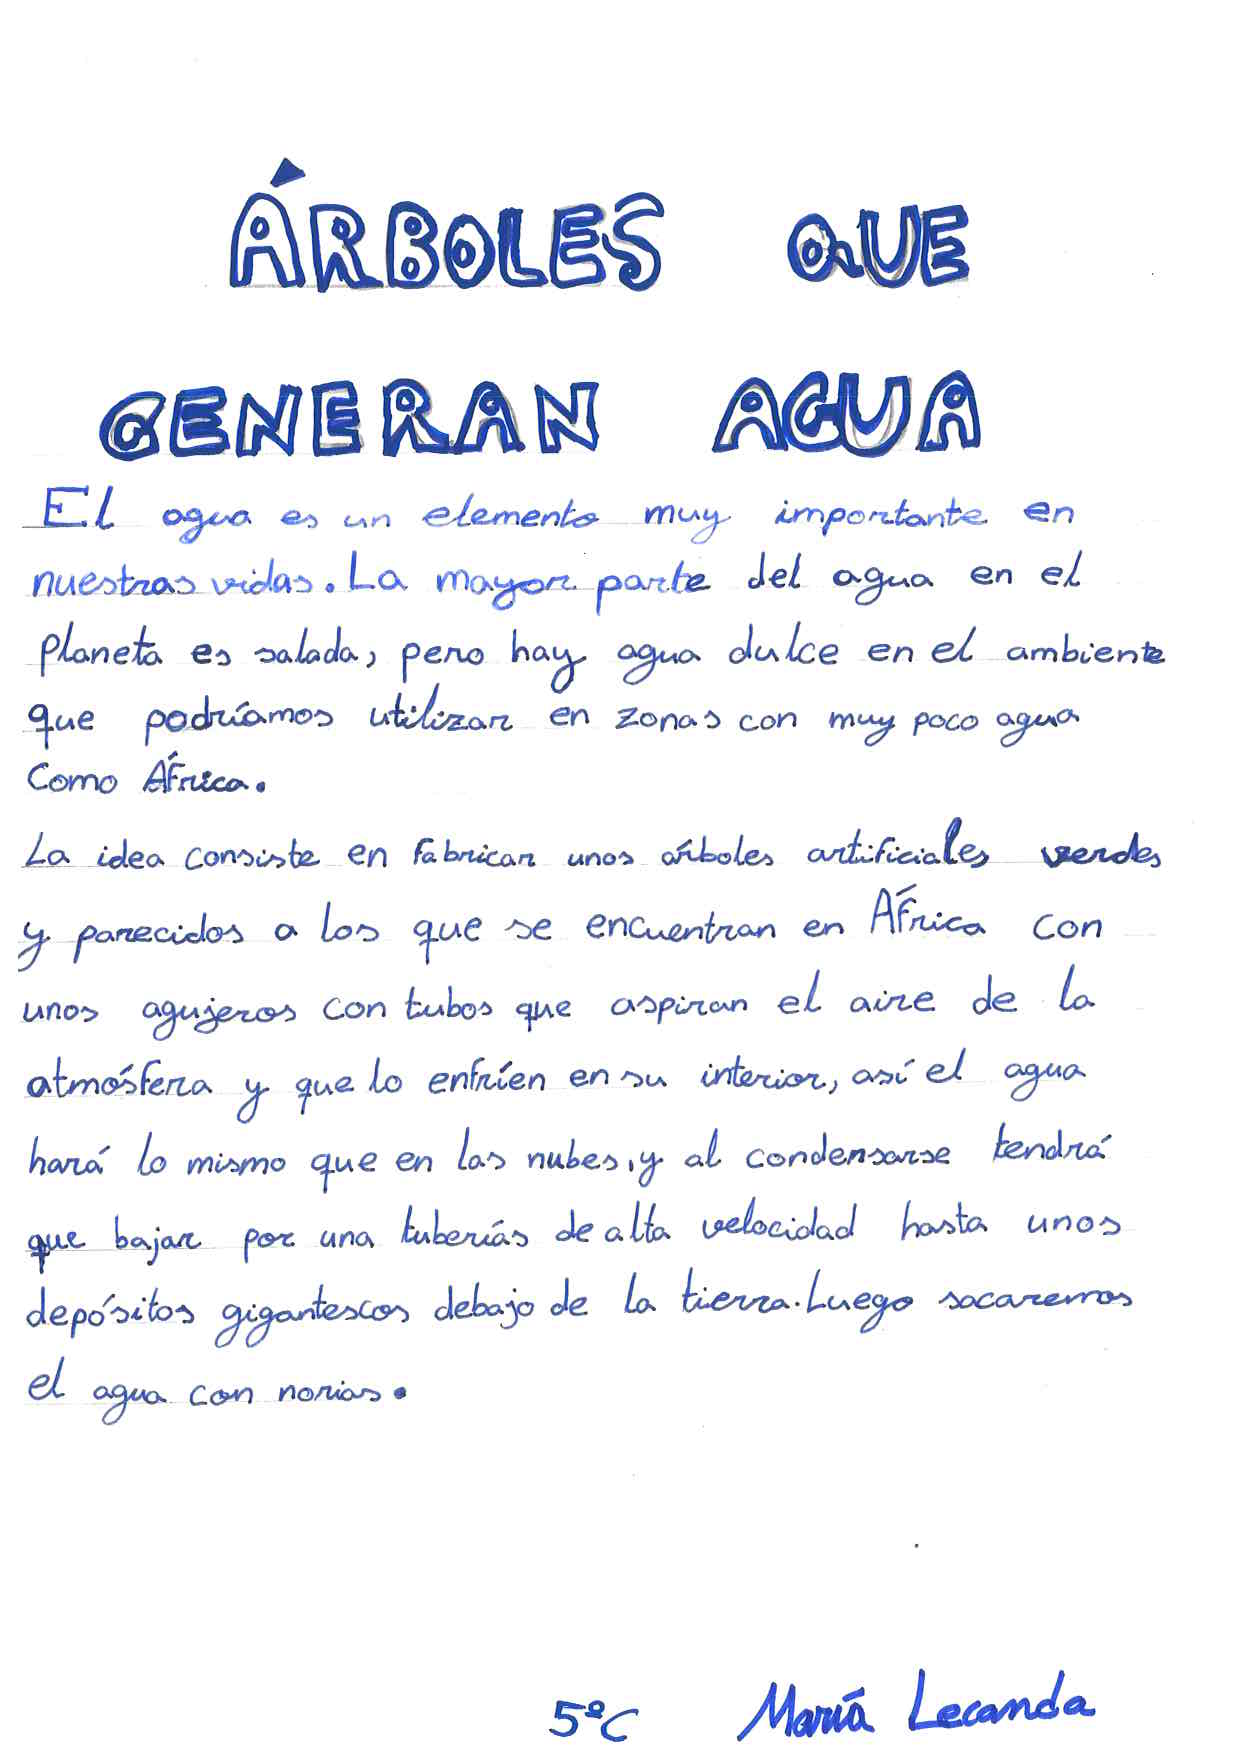 ÁRBOLES QUE
GENERAN AGUA
El agua es un elemento muy importante en
nuestras vidas. La mayor parte del agua en el
planeta es salada, pero hay agua dulce en el ambiente
que podríamos utilizar en zonas con muy poco agua
Como África.
La idea consiste en fabricar unos árboles artificiales verdes
y parecidos a los que se encuentran en África con
unos agujeros con tubos que aspiran el aire de la
atmósfera y que lo enfríen en su interior, así el agua
hará lo mismo que en las nubes, y al condensarse tendrá
que bajar por una tuberiás de alta velocidad hasta unos
depósitos gigantescos debajo de la tierra. Luego sacaremos
el agua con norias.
5ºC María Lecanda